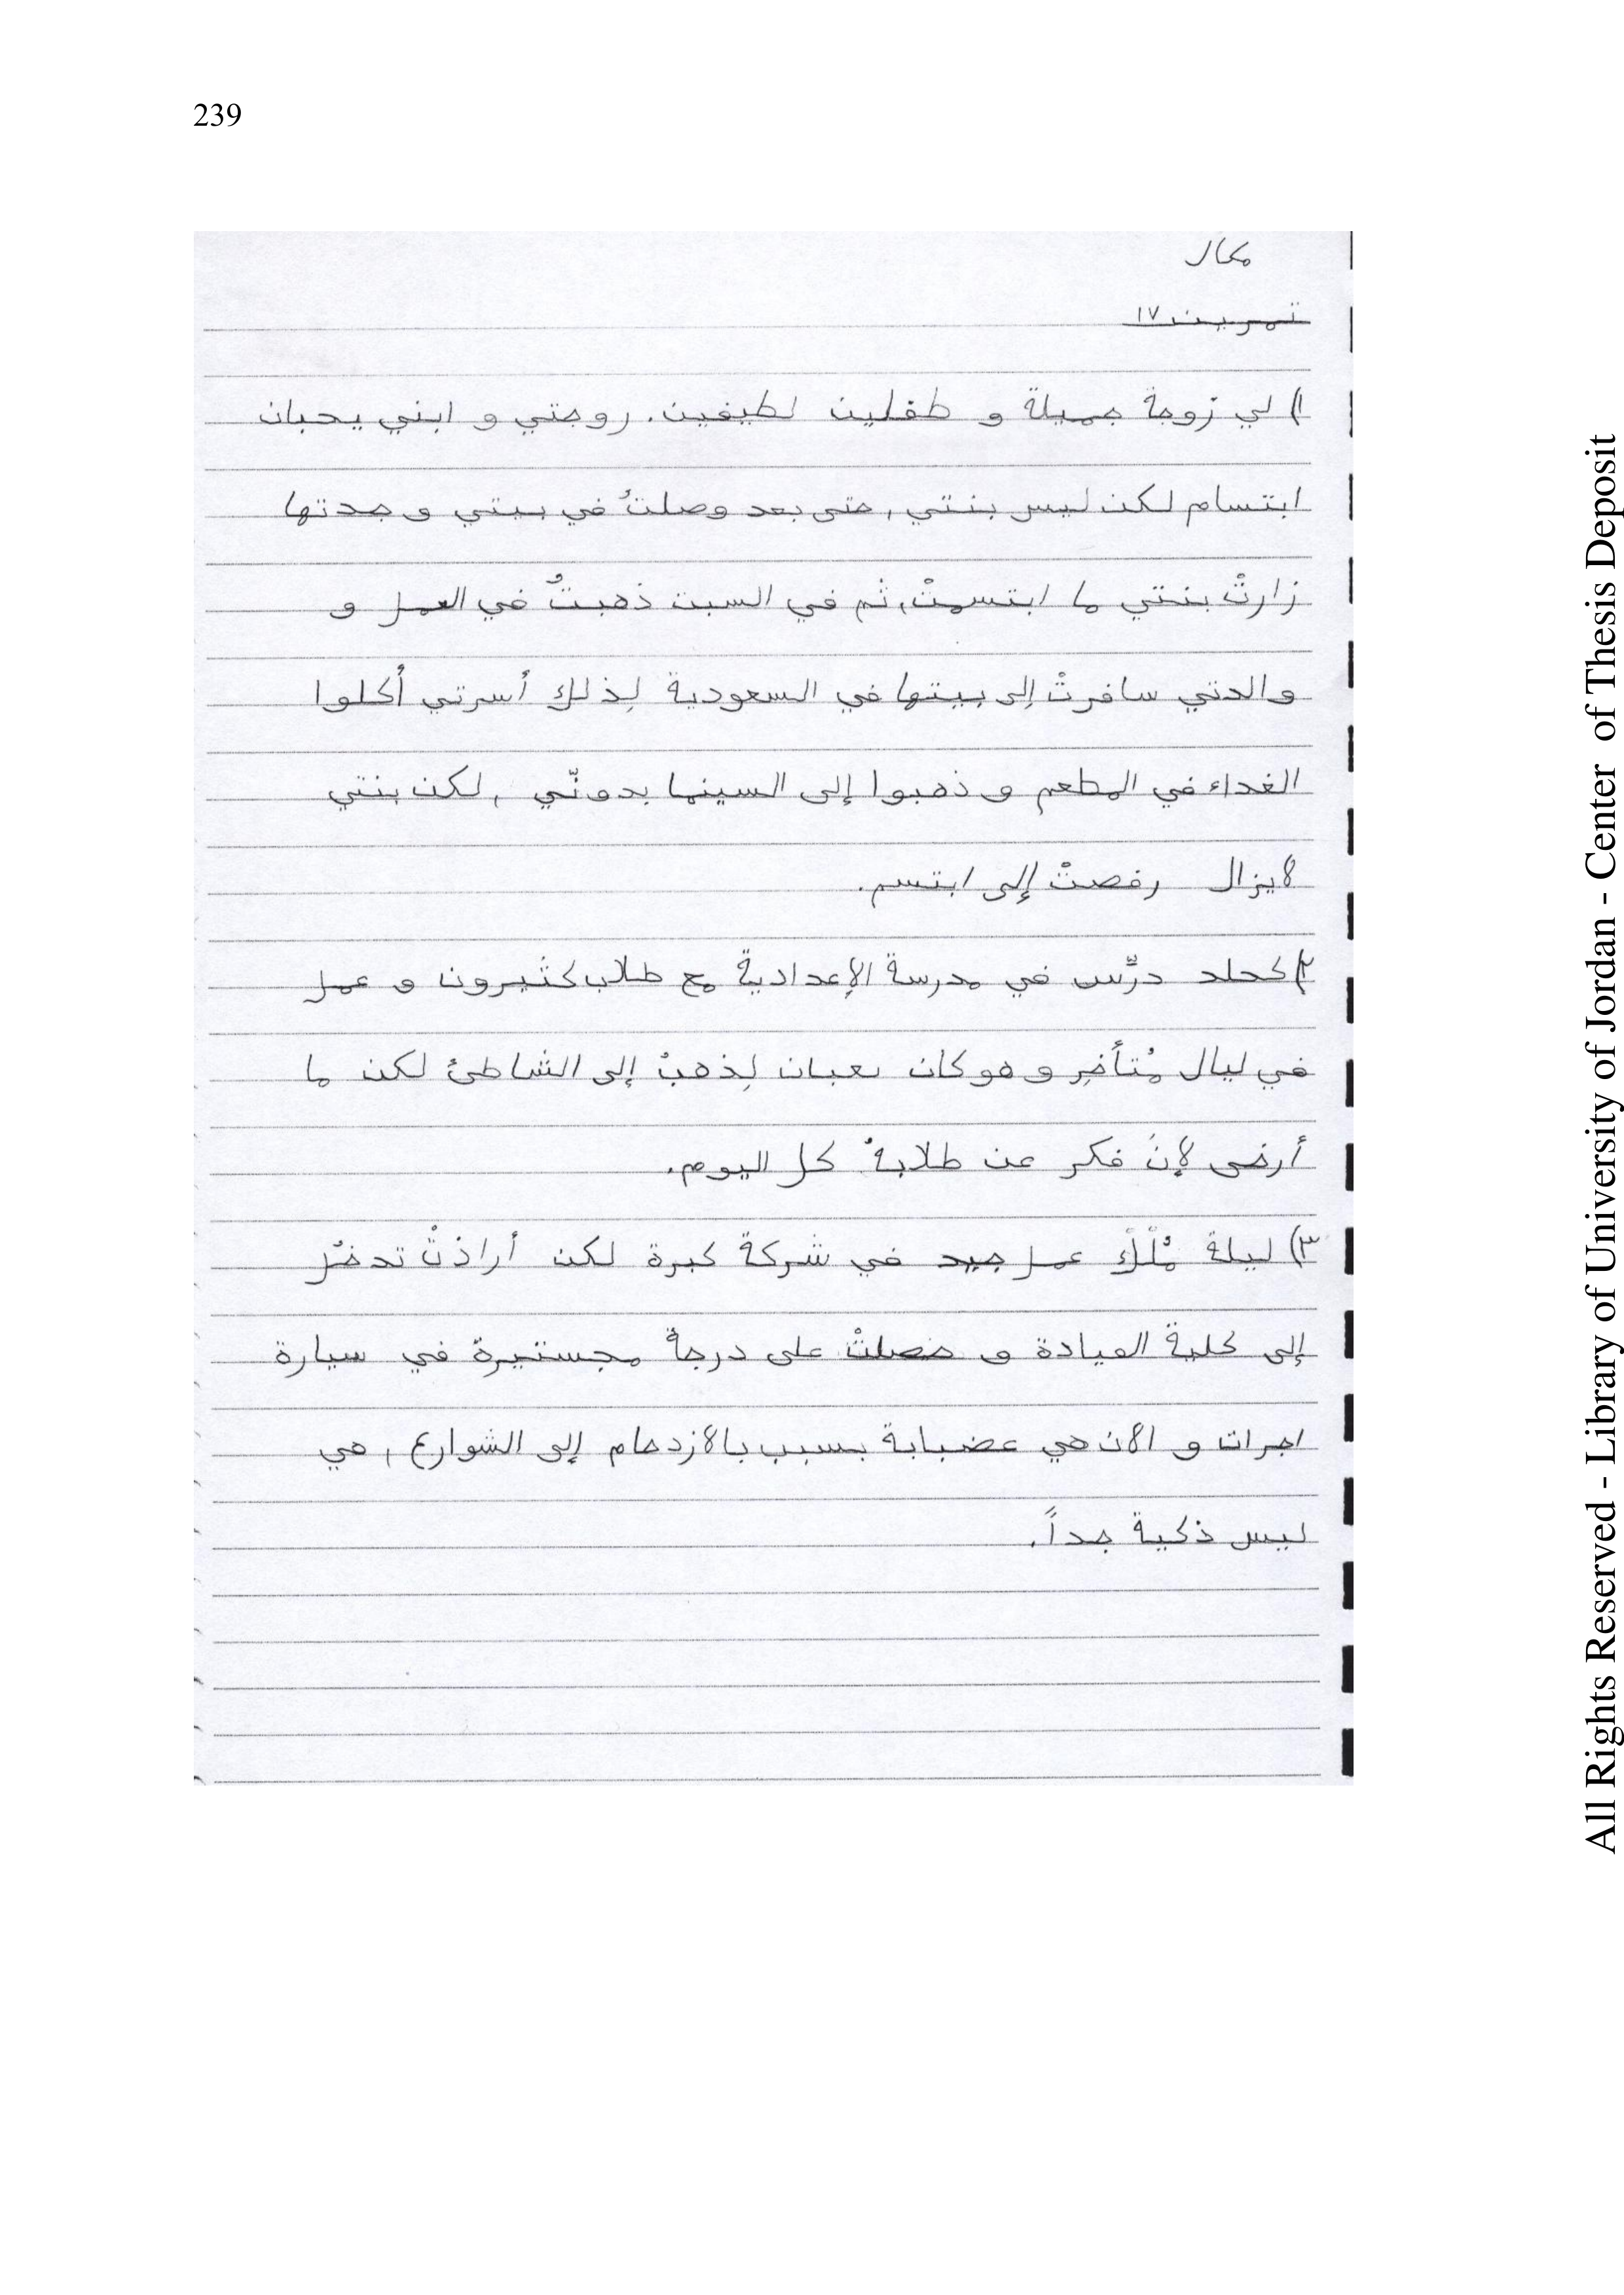 239
مكال
تمرين ١٧
١) لي زوجة جميلة و طفلين لطيفين. روجتي و ابني يحبان
ابتسام لكن ليس بنتي, حتى بعد وصلتُ في بيتي و جدتها
زارتْ بنتي ما ابتسمتْ, ثم في السبت ذهبتُ في العمل و
والدتي سافرتْ إلى بيتها في السعودية لِذلك أسرتي أكلوا
الغداء في المطعم و ذهبوا إلى السينما بدونّي , لكن بنتي
لايزال رفصتْ إلى ابتسم.
٢) درّس في مدرسة الإعدادية مع طلاب كثيرون و عمل
في ليال مُتأخِر و هو كان نعبان لِذهبْ إلى الشاطئ لكن ما
أرضى لإنَ فكر عن طلابهُ كل اليوم.
٣) ليلة عمل جيد في شركة كبرة لكن أراذتْ تدخُل
إلى كلية العيادة و حصلتْ على درجة مجستيرة في سيارة
اجرات و الان هي عضبابة بسبب بالازدحام إلى الشوارع , هي
ليس ذكية جداً.
All Rights Reserved - Library of University of Jordan - Center of Thesis Deposit